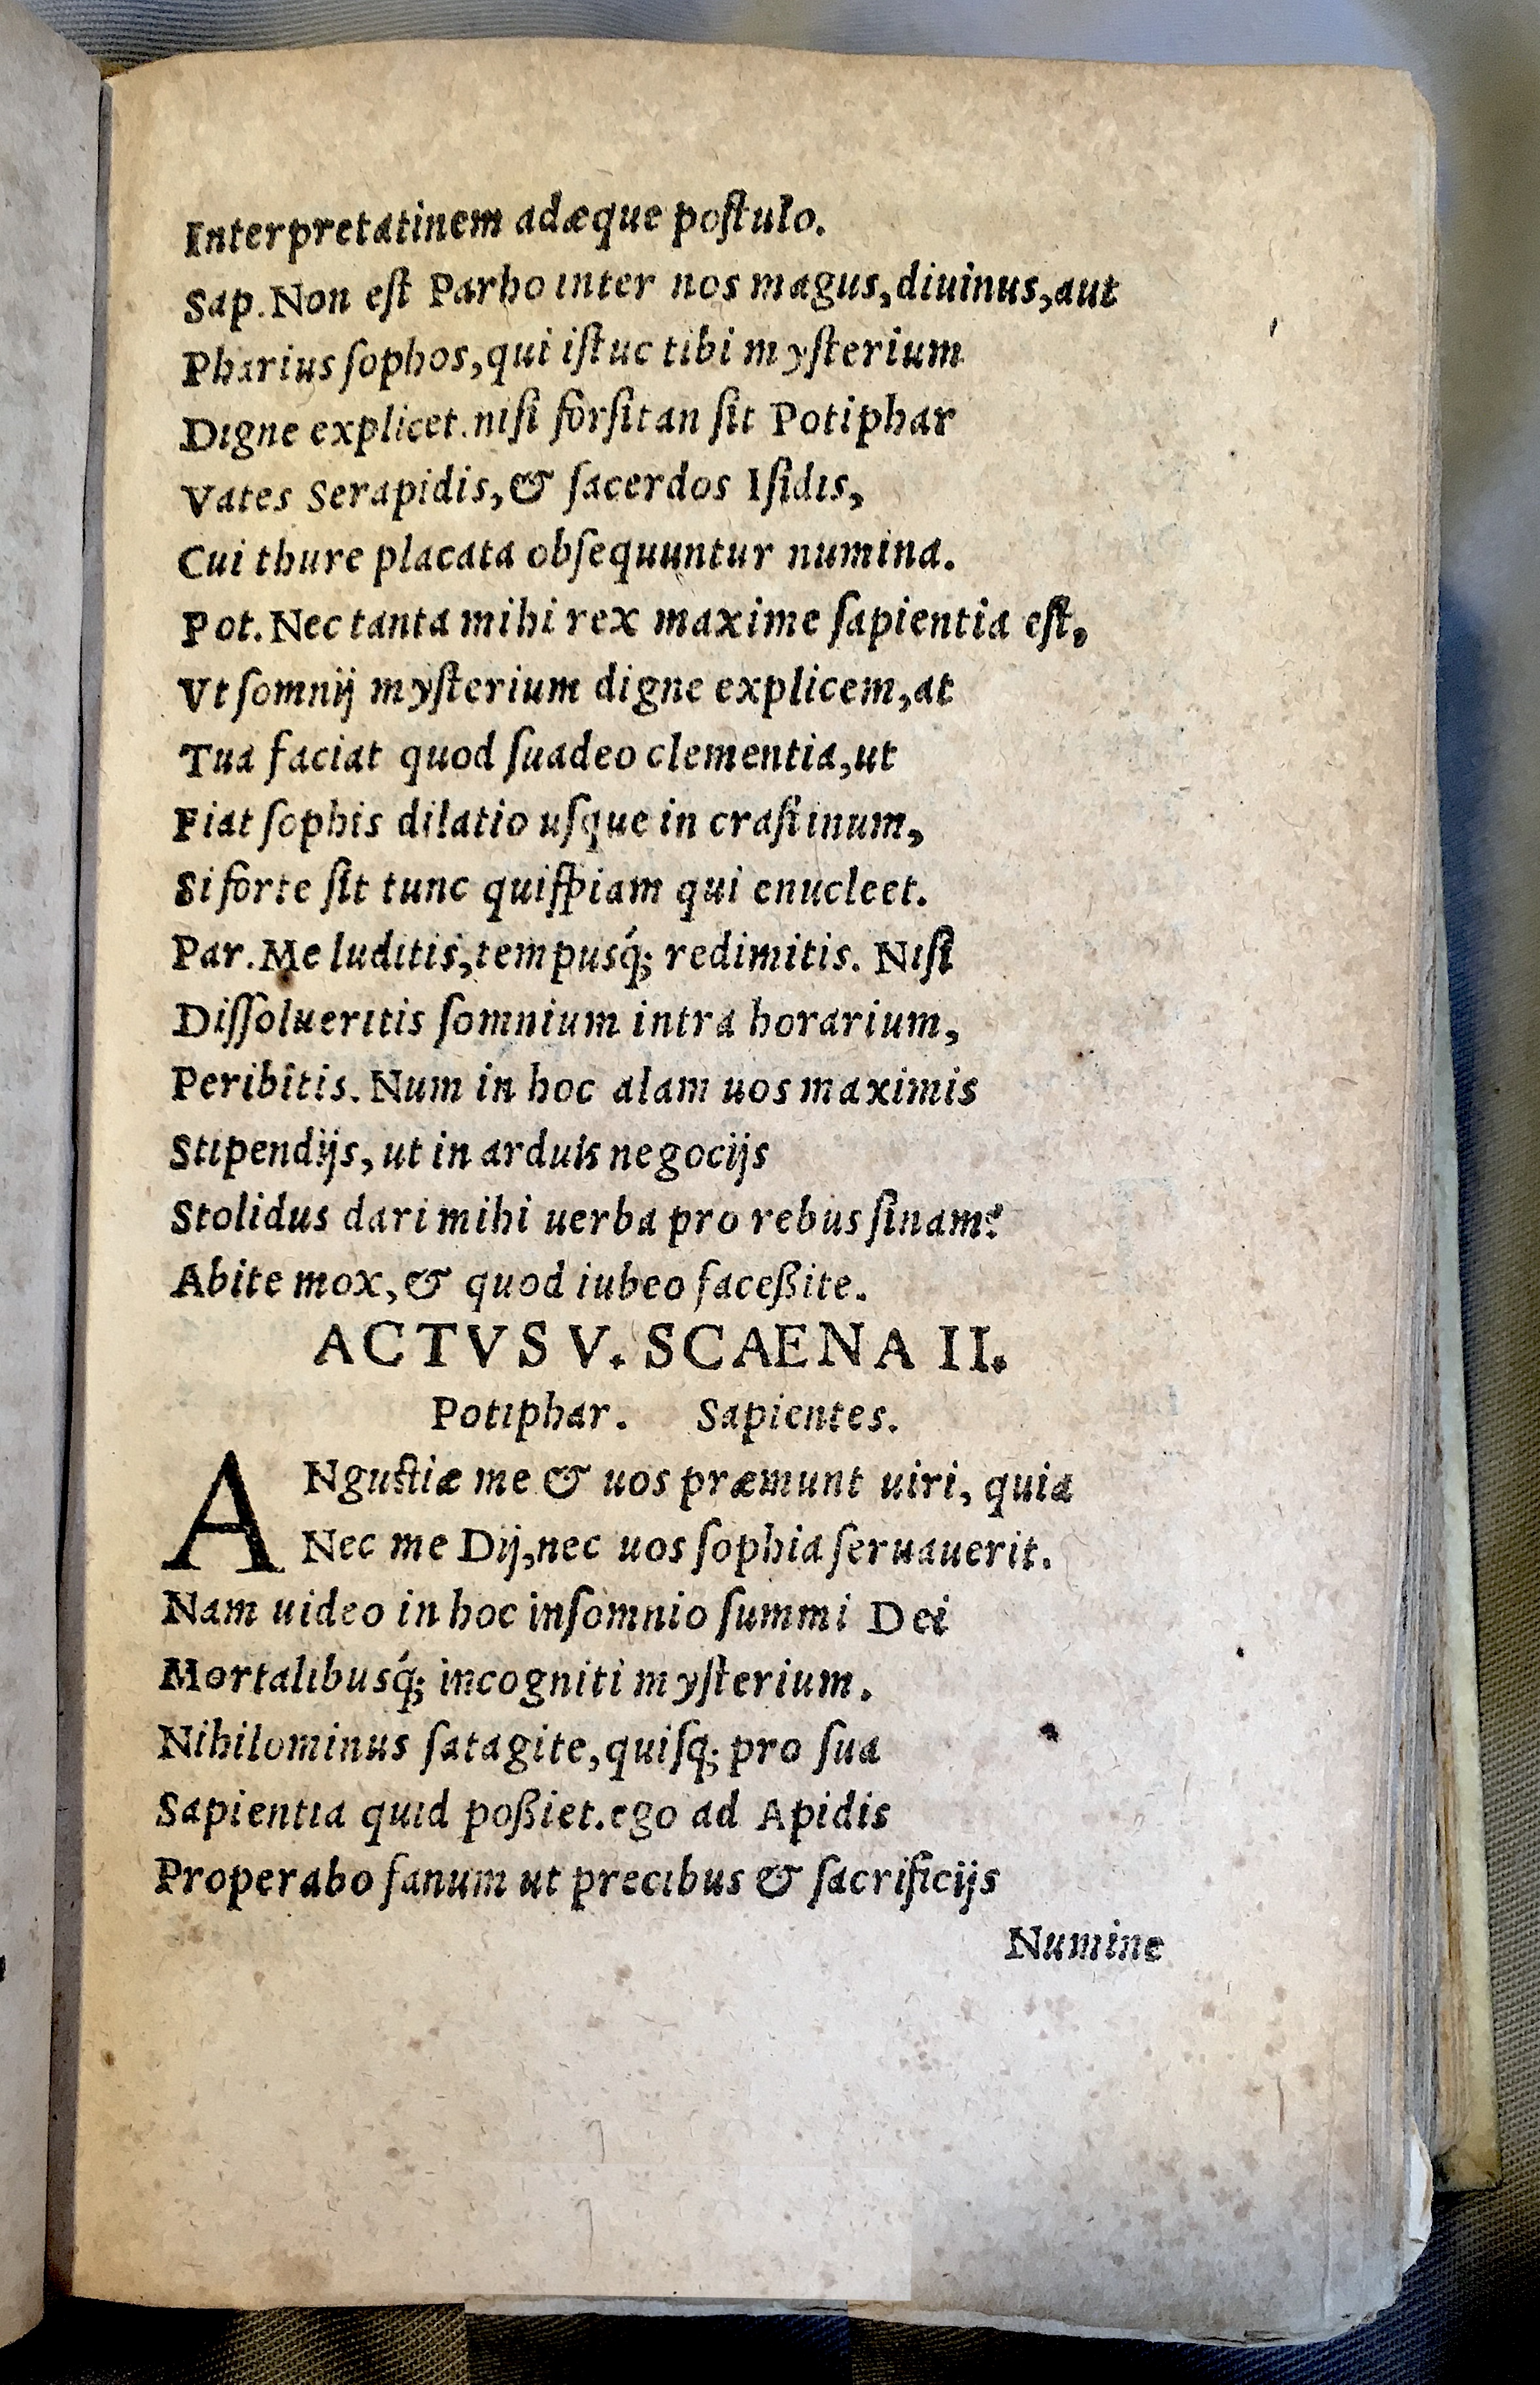 Interpretatinem adæque poſtulo.
Sap. Non eſt Parho inter nos magus, diuinus, aut
Pharius ſophos, qui iſtuc tibi myſterium
Digne explicet. niſi forſitan ſit Potiphar
Vates Serapidis, & ſacerdos Iſidis,
Cui thure placata obſequuntur numina.
Pot. Nec tanta mihi rex maxime ſapientia eſt,
Vt ſomnij myſterium digne explicem, at
Tua faciat quod ſuadeo clementia, ut
Fiat ſophis dilatio uſque in craſtinum,
Si forte ſit tunc quiſpiam qui enucleet.
Par. Me luditis, tempusq́; redimitis. Niſi
Diſſolueritis ſomnium intra horarium,
Peribitis. Num in hoc alam uos maximis
Stipendijs, ut in arduis negocijs
Stolidus dari mihi uerba pro rebus ſinam?
Abite mox, & quod iubeo faceßite.
ACTVS V. SCAENA II.
Potiphar. Sapientes.
ANguſtiæ me & uos præmunt uiri, quia
Nec me Dij, nec uos ſophia ſeruauerit.
Nam uideo in hoc inſomnio ſummi Dei
Mortalibusq́; incogniti myſterium.
Nihilominus ſatagite, quiſq; pro ſua
Sapientia quid poßiet. ego ad Apidis
Properabo fanum ut precibus & ſacrificijs
Numine